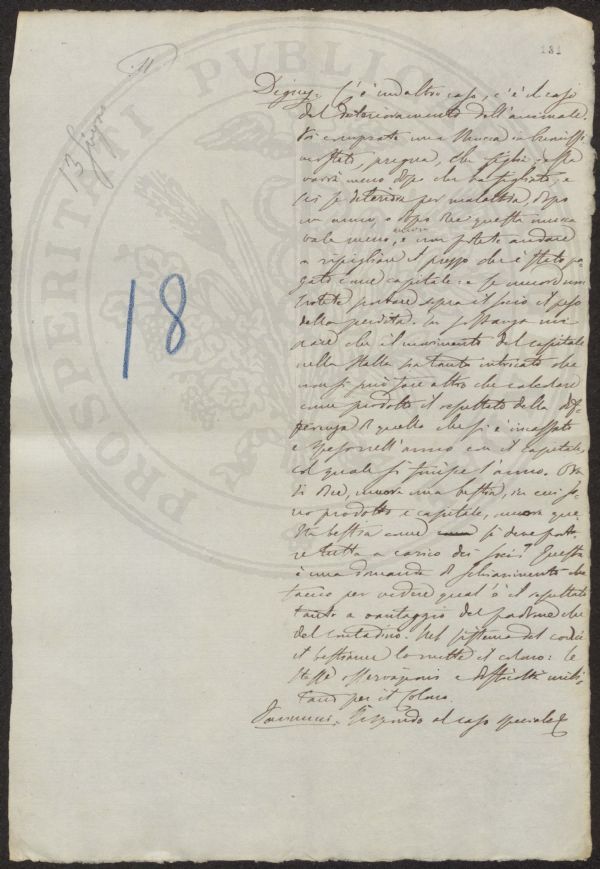 131
11
13 Giug
18
Digny. C'è un altro caso, c'è il caso
del deterioramento dell'animale.
Voi comprate una Mucca in buonissi
mo stato, pregna, che figli: essa
varrà meno dopo che ha figliato, e
se si deteriora per malattia, dopo
un anno, o dopo tre questa mucca
vale meno, e non potete andare
a ripigliare il prezzo che è stato pa
gato come capitale: e se muore non
potete portare sopra il socio il peso
della perdita. In sostanza mi
pare che il movimento del capitale
nella stalla sia tanto intricato che
non si può fare altro che calcolare
come prodotto il resultato della dif
ferenza di quello che si è incassato
e speso nell'anno con il capitale,
col quale si finisce l'anno. Ora
di tre, muore una bestia, in cui so
no prodotto e capitale, muore que
sta bestia come si deve porta
re tutta a carico dei soci? Questa
è una domanda di schiarimento che
faccio per vedere qual'è il resultato
tanto a vantaggio del padrone che
del contadino. Nel sistema del codice
il bestiame lo mette il colono: le
stesse osservazioni e difficoltà mili
tano per il Colono.
Rispondo al caso speciale
PROSPERITATI PUBLIC